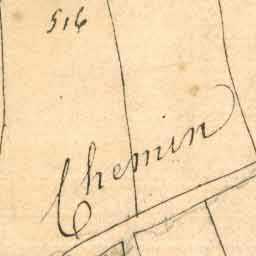 516
Chemin